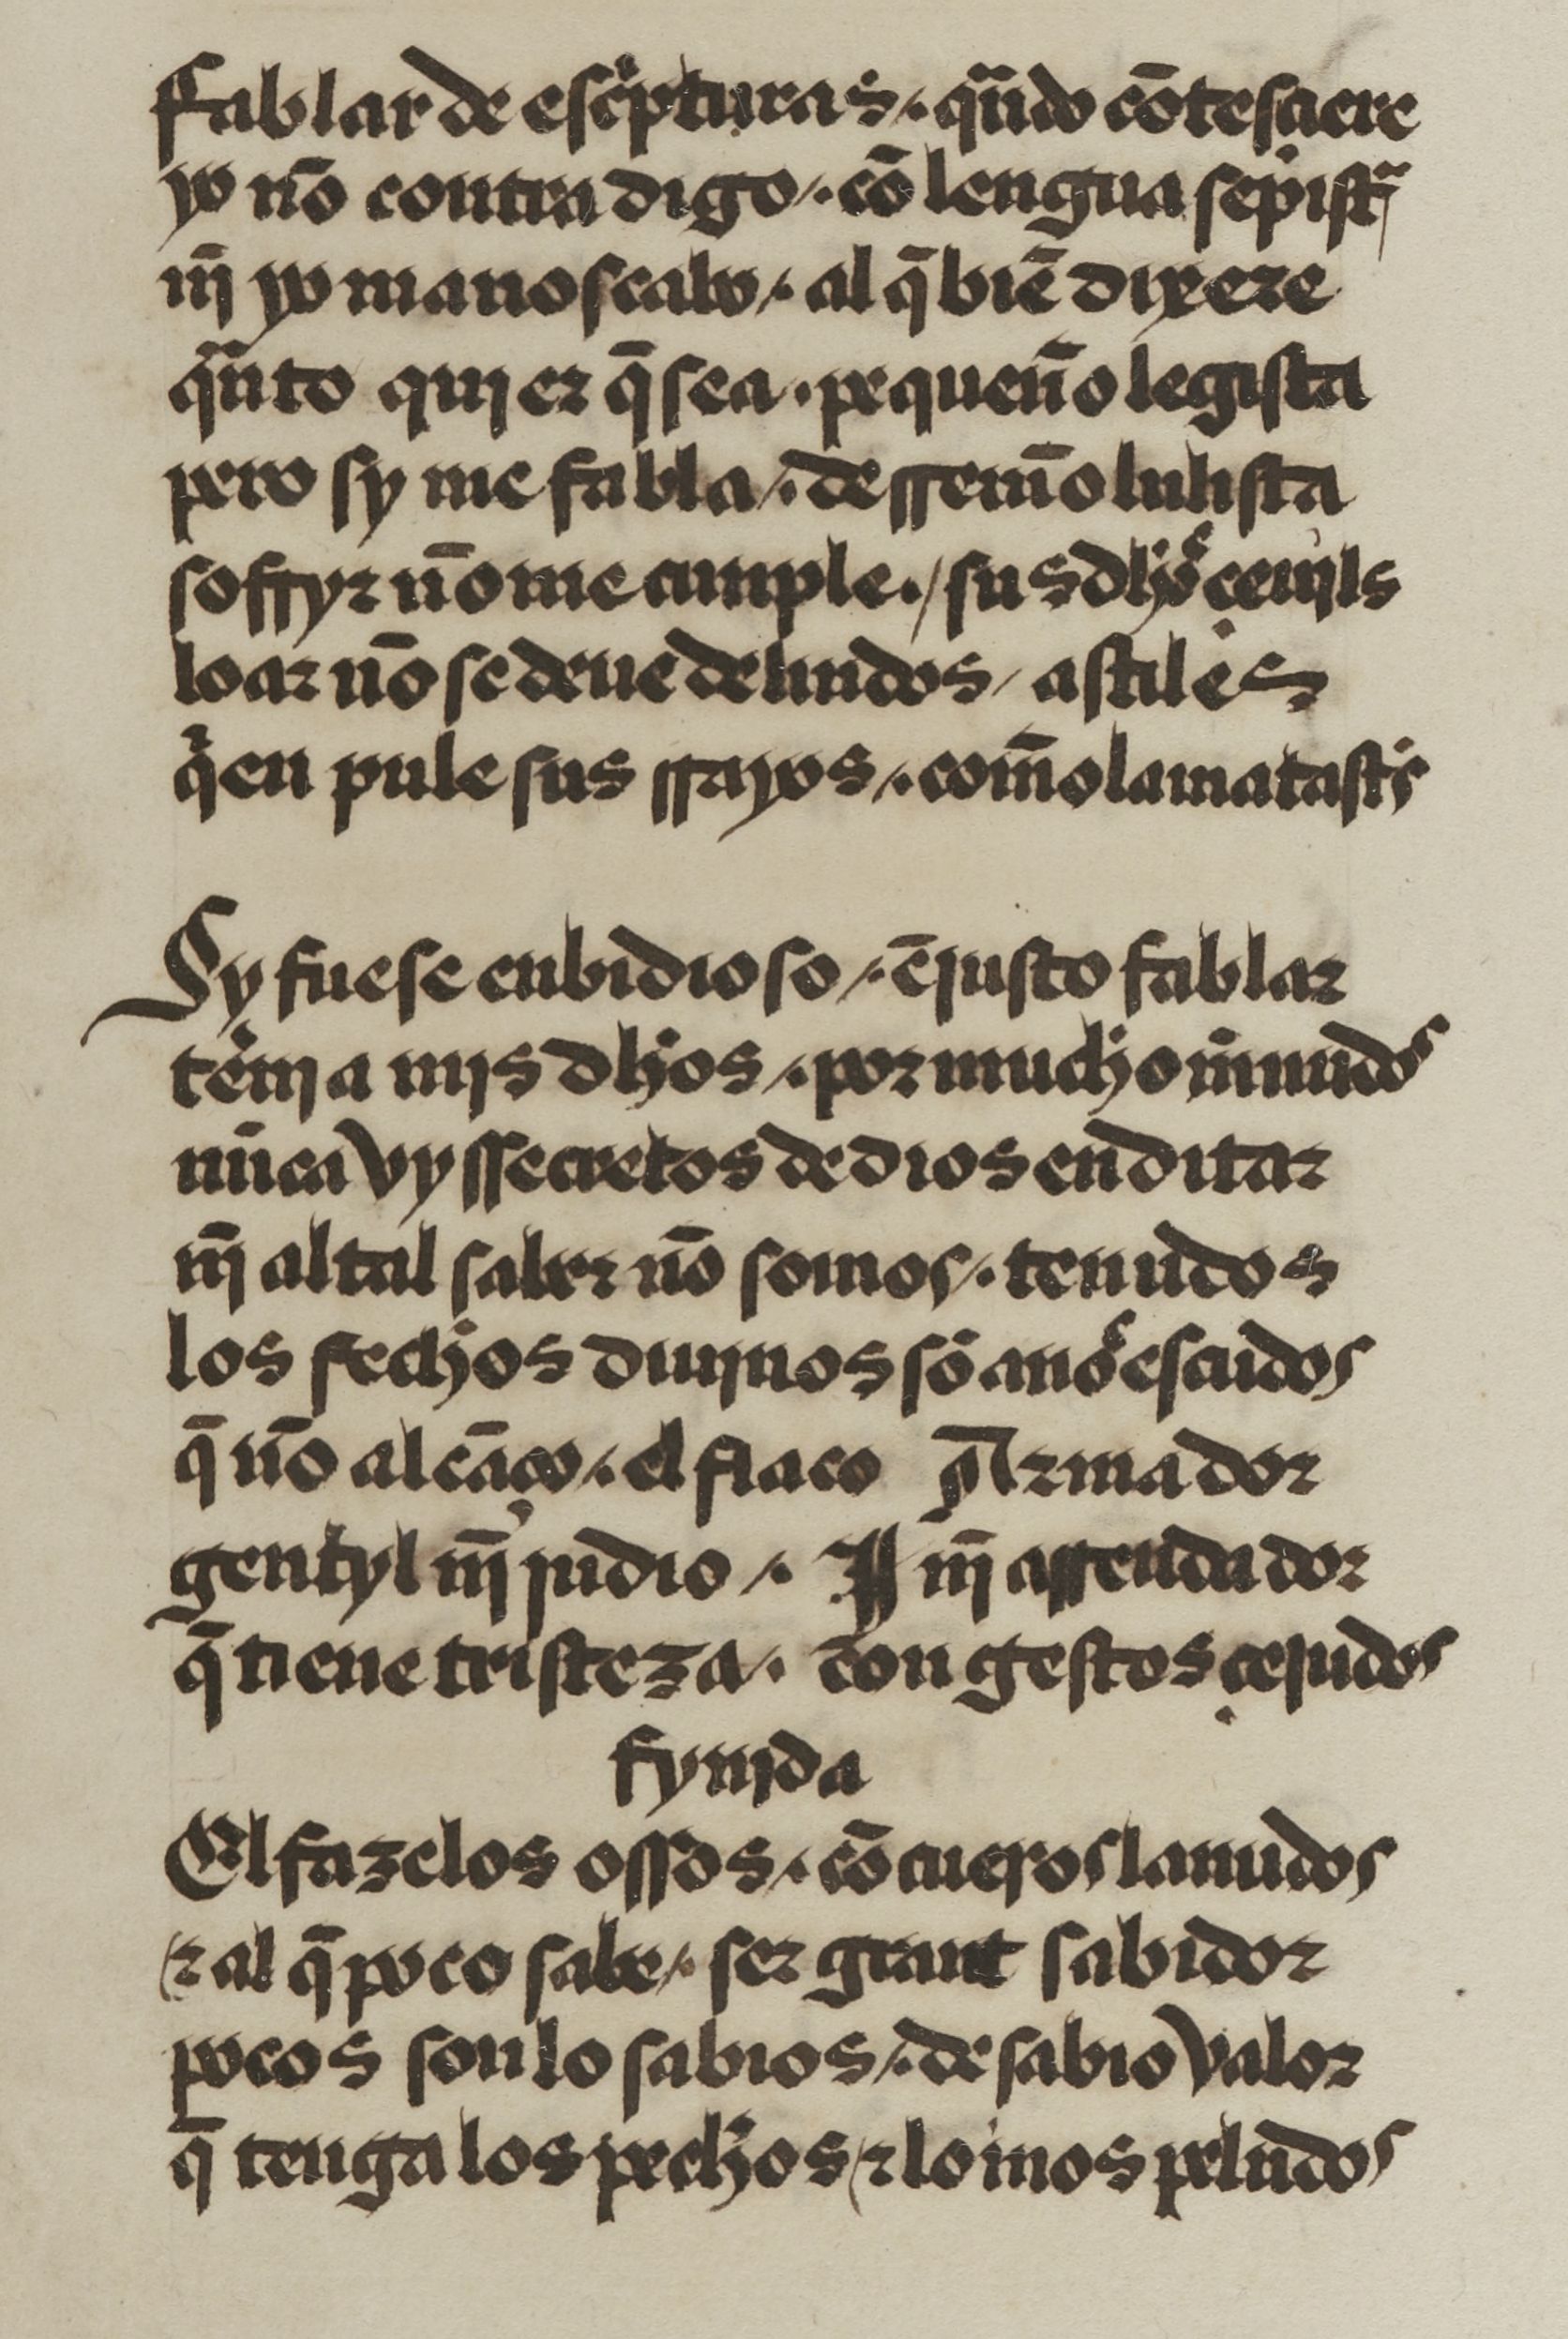 Fablar de escͥpturas ./ qͣndo cōtesciere
yo nō contradigo ./ cō lengua sepistͣ
nī yo manoscabo ./ al q̄ biē dixere
qͣnto quier q̄ sea . pequeño legista
pero sy me fabla ./ de rremō lulista
sofryr nō me cunple ./ sus dhos çeuils
loar nō se deue de lindos / astiles
qͥen pule sus rrayos ./ commo la matastͥs
Sy fuese enbidioso ./ ē justo fablar
tern̄ia mis dhos ./ por mucho mēnudos
nūca vy ssecretos de dios enditar
nī al tal saber nō somos ./ tenudos
los fechos diuinos sō a nos escudos
q̄ nō alcāço ./ el flaco Armador
gentyl nī judio ./ nī arrendador
q̄ tiene tristeza ./ con gestos çejudos
fynida
El faze los ossos ./ cō cueros lanudos
⁊ al q̄ poco sabe ./ ser grant sabidor
pocos son lo sabios ./ de sabio valor
q̄ tenga los pechos ⁊ lomos peludos